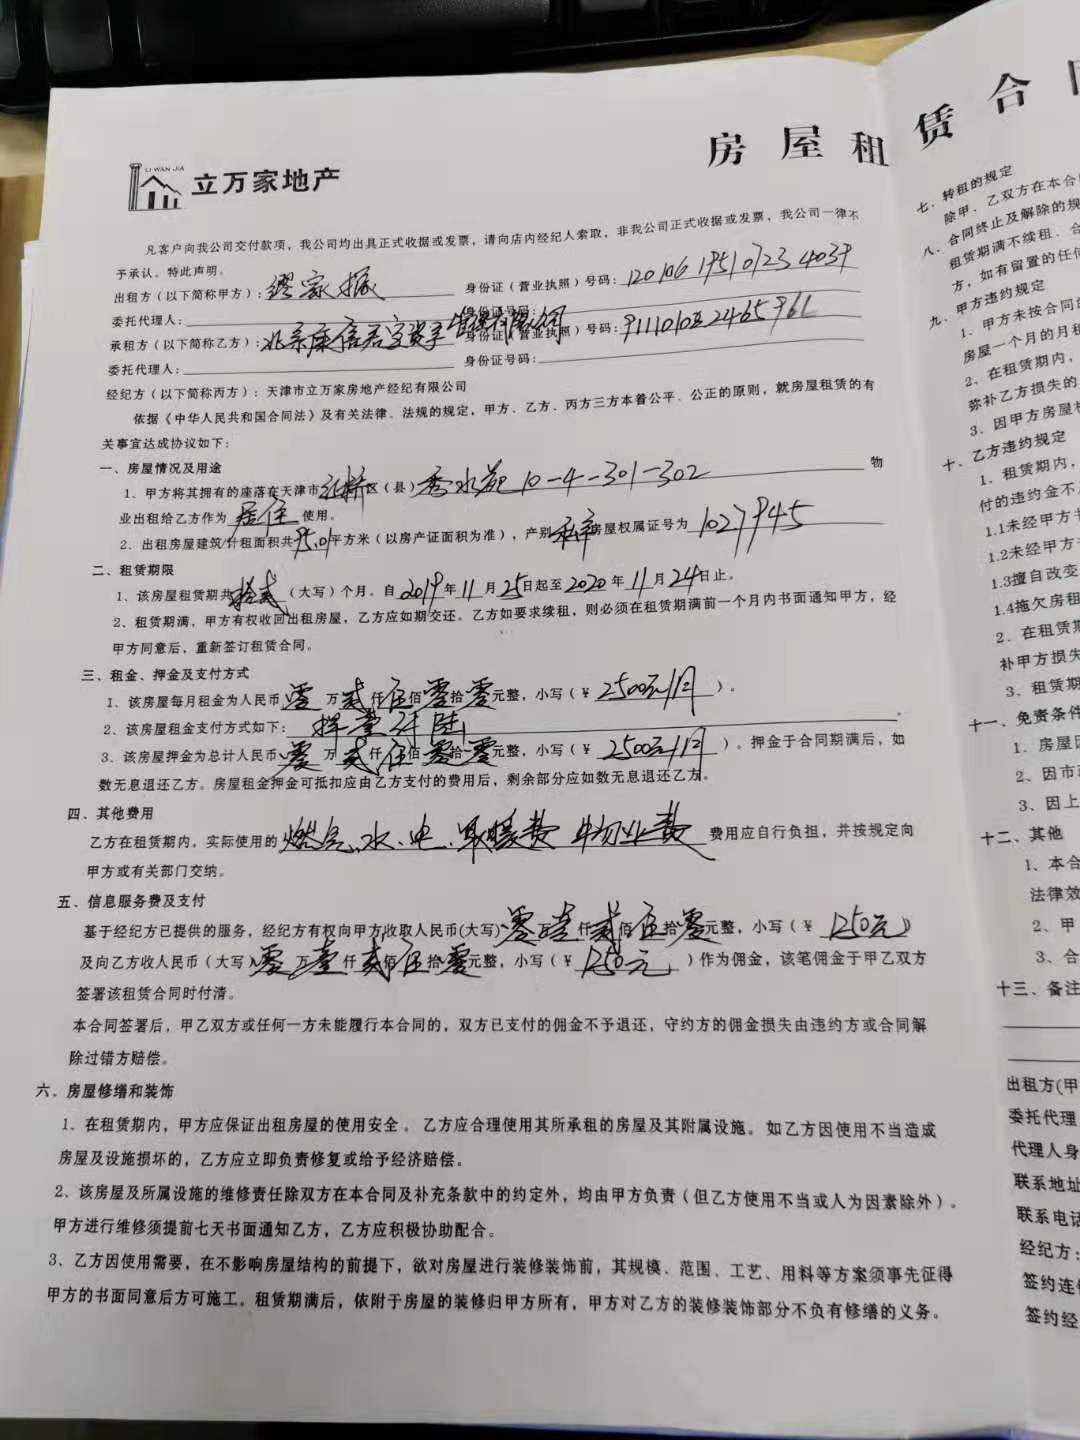 房屋租赁合
LI WAN JIA
立万家地产
凡客户向我公司交付款项，我公司均出具正式收据或发票，请向店内经纪人索取，非我公司正式收据或发票，我公司一律不
予承认。特此声明。
出租方（以下简称甲方）：缪家振 身份证（营业执照）号码：120106195107234039
委托代理人： 身份证号码：
承租方（以下简称乙方）：北京 管理有限公司 身份证（营业执照）号码：
委托代理人： 身份证号码：
经纪方（以下简称丙方）：天津市立万家房地产经纪有限公司
依据《中华人民共和国合同法》及有关法律、法规的规定，甲方、乙方、丙方三方本着公平、公正的原则，就房屋租赁的有
关事宜达成协议如下：
一、房屋情况及用途
1．甲方将其拥有的座落在天津市红桥区（县）秀水苑10-4-301-302 物
业出租给乙方作为居住使用。
2．出租房屋建筑/计租面积共95.01平方米（以房产证面积为准），产别私产房屋权属证号为1027945
二、租赁期限
1、该房屋租赁期共拾贰（大写）个月。自2019年11月25日起至2020年11月24日止。
2、租赁期满，甲方有权收回出租房屋，乙方应如期交还。乙方如要求续租，则必须在租赁期满前一个月内书面通知甲方，经
甲方同意后，重新签订租赁合同。
三、租金、押金及支付方式
1、该房屋每月租金为人民币零万贰仟伍佰零拾零元整，小写（￥2500元/月）。
2、该房屋租金支付方式如下：押壹付陆
3、该房屋押金为总计人民币零万贰仟伍佰零拾零元整，小写（￥2500元/月）。押金于合同期满后，如
数无息退还乙方。房屋租金押金可抵扣应由乙方支付的费用后，剩余部分应如数无息退还乙方。
四、其他费用
乙方在租赁期内，实际使用的燃气、水、电、取暖费 物业费费用应自行负担，并按规定向
甲方或有关部门交纳。
五、信息服务费及支付
基于经纪方已提供的服务，经纪方有权向甲方收取人民币(大写)零万壹仟贰佰伍拾零元整，小写（￥1250元）
及向乙方收人民币（大写）零万壹仟贰佰伍拾零元整，小写（￥1250元）作为佣金，该笔佣金于甲乙双方
签署该租赁合同时付清。
本合同签署后，甲乙双方或任何一方未能履行本合同的，双方已支付的佣金不予退还，守约方的佣金损失由违约方或合同解
除过错方赔偿。
六、房屋修缮和装饰
1．在租赁期内，甲方应保证出租房屋的使用安全。乙方应合理使用其所承租的房屋及其附属设施。如乙方因使用不当造成
房屋及设施损坏的，乙方应立即负责修复或给予经济赔偿。
2、该房屋及所属设施的维修责任除双方在本合同及补充条款中的约定外，均由甲方负责（但乙方使用不当或人为因素除外）。
甲方进行维修须提前七天书面通知乙方，乙方应积极协助配合。
3、乙方因使用需要，在不影响房屋结构的前提下，欲对房屋进行装修装饰前，其规模、范围、工艺、用料等方案须事先征得
甲方的书面同意后方可施工。租赁期满后，依附于房屋的装修归甲方所有，甲方对乙方的装修装饰部分不负有修缮的义务。
七、转租的规定
除甲、乙双方在本合
八、合同终止及解除的规
租赁期满不续租、合
方，如有留置的任何
九、甲方违约规定
1．甲方未按合同
房屋一个月的月租
2、在租赁期内，
弥补乙方损失的
3．因甲方房屋
十、乙方违约规定
1．租赁期内，
付的违约金不
1.1未经甲方
1.2未经甲方
1.3擅自改变
1.4拖欠房租
2．在租赁期
补甲方损失
3．租赁期
十一、免责条件
1．房屋
2、因市
3、因上
十二、其他
1、本合
法律效
2、甲
3、合
十三、备注
出租方(甲
委托代理
代理人身
联系地址
联系电话
经纪方：
签约连
签约经